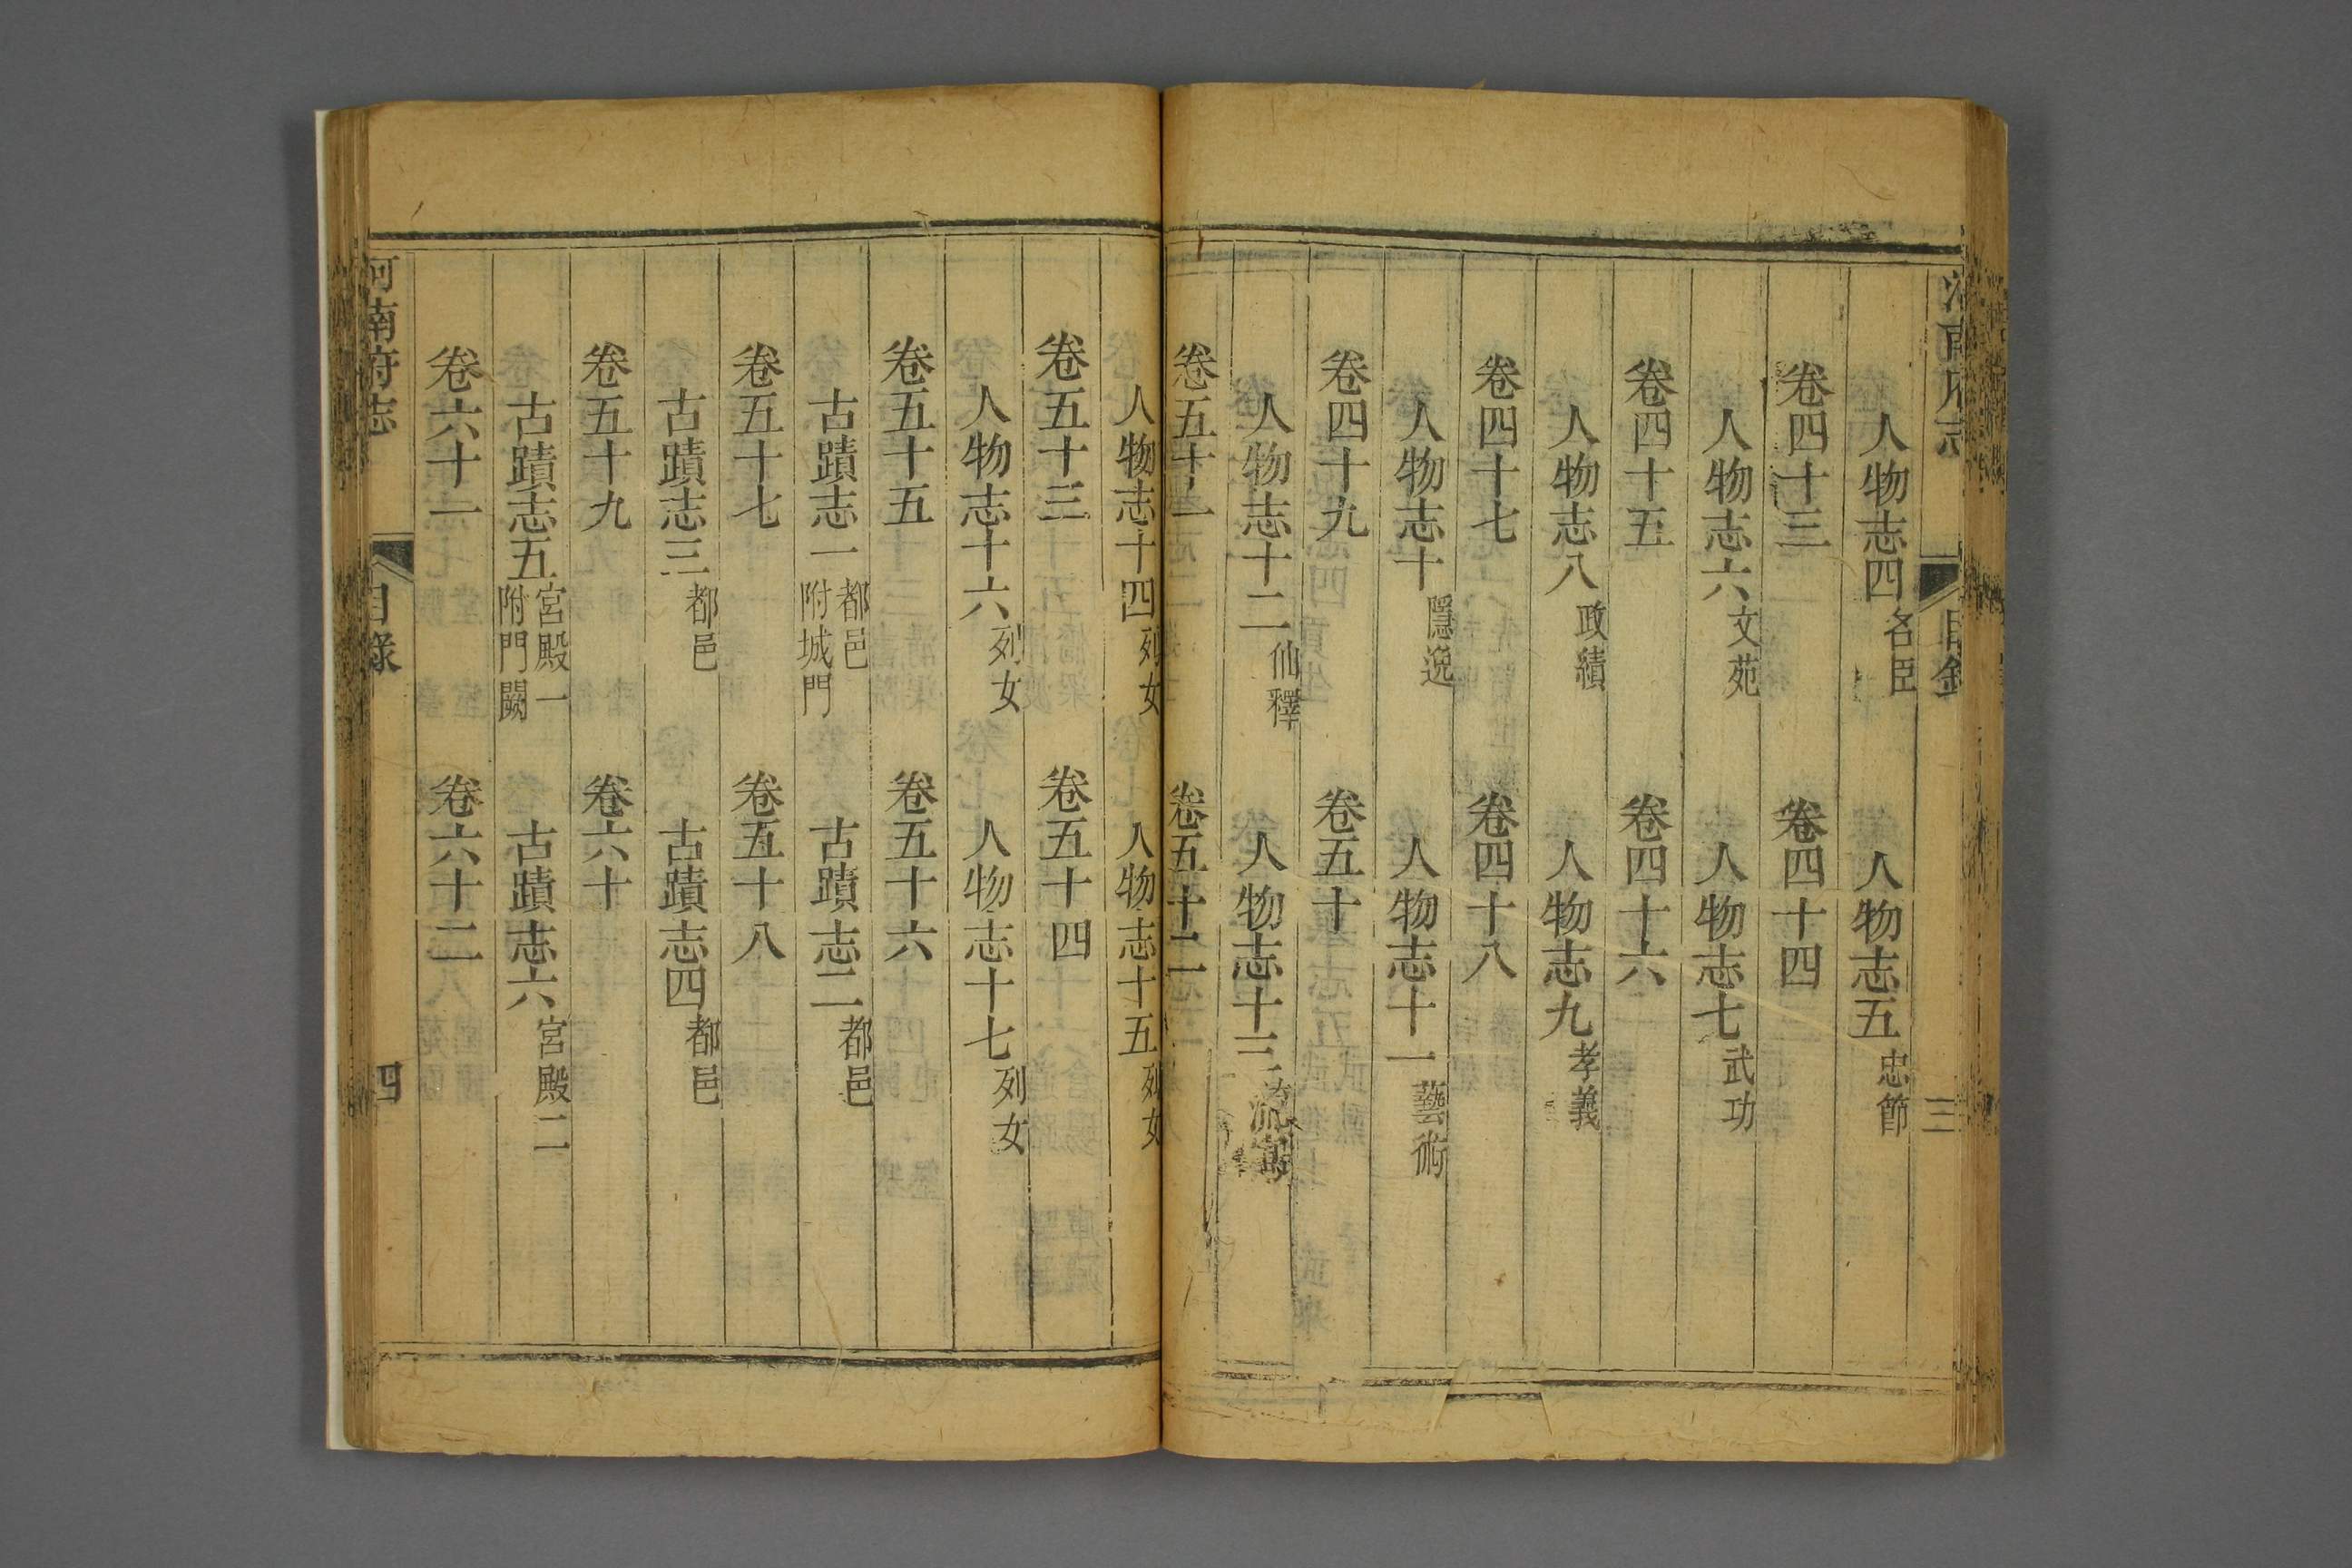 河南府志 目錄 三
人物志四 名臣 人物志五 忠節
卷四十三 卷四十四
人物志六 文苑 人物志七 武功
卷四十五 卷四十六
人物志八 政績 人物志九 孝義
卷四十七 卷四十八
人物志十 隱逸 人物志十一 藝術
卷四十九 卷五十
人物志十二 仙釋 人物志十三 流寓
卷五十一 卷五十二
人物志十四 列女 人物志十五 列女
卷五十三 卷五十四
人物志十六 列女 人物志十七 列女
卷五十五 卷五十六
古蹟志一 都邑 附城門 古蹟志二 都邑
卷五十七 卷五十八
古蹟志三 都邑 古蹟志四 都邑
卷五十九 卷六十
古蹟志五 宮殿一 附門闕 古蹟志六 宮殿二
卷六十一 卷六十二
河南府志 目錄 四